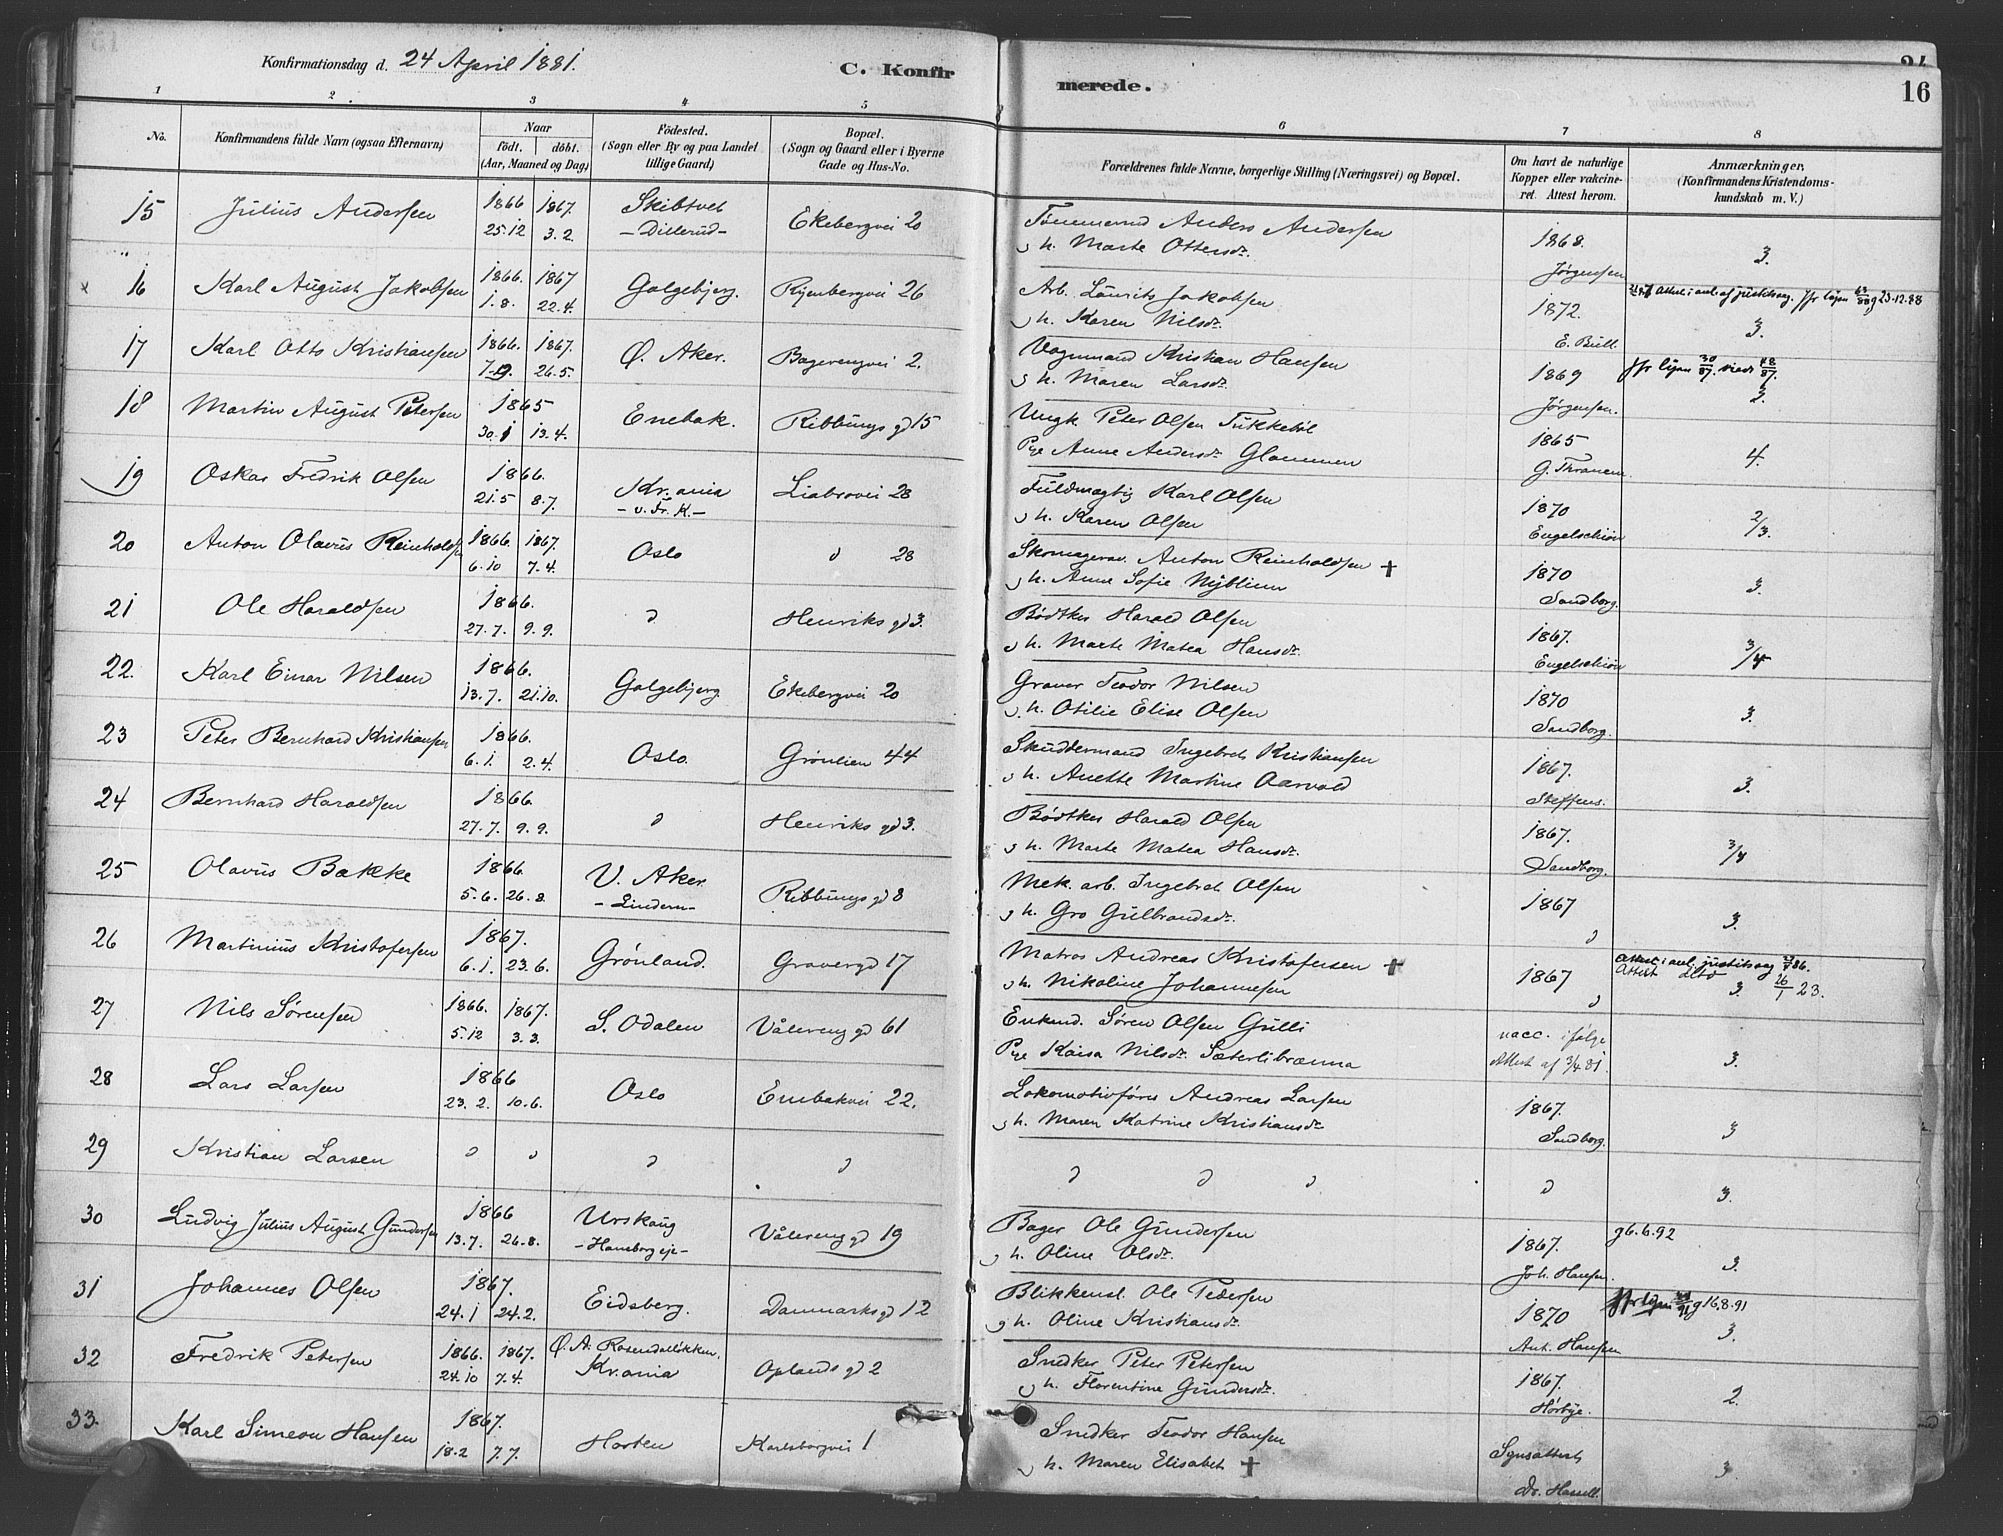 Konfirmationsdag d. 24 April 1881.
C. Konfirmerede.
16
1 2 3 4 5 6 7 8
No.
Konfirmandens fulde Navn (ogsaa Efternavn)
Naar
Født. døbt.
(Aar, Maaned og Dag)
Fødested.
(Sogn eller By og paa Landet
tillige Gaard)
Bopæl.
(Sogn og Gaard eller i Byerne
Gade og Hus-No.
Forældrenes fulde Navne, borgerlige Stilling (Næringsvei) og Bopæl.
Om havt de naturlige
Kopper eller vakcine-
ret. Attest herom.
Anmærkninger.
(Konfirmandens Kristendoms-
kundskab m. V.)
15 Julius Andersen 1866 1867. Skibtvet Ekebergvei 20 Tømmermd Anders Andersen 1868.
25.12 3.2. - Dillerud - g h. Marte Ottersdr. Jørgensen 3.
16 Karl August Jakobsen 1866. 1867 Galgebjerg. Ryenbergvei 26 Arb. Laurits Jakobsen 1872.
1.8. 22.4. g h. Karen Nilsdr. E. Bull 3.
17 Karl Otto Kristiansen 1866. 1867. Ø. Aker. Bagerengvei 2. Vognmand Kristian Hansen 1869
26.5. g h. Maren Larsdr. Jørgensen.
18 Martin August Petersen 1865 Enebak. Ribbungs gd 15 Ungk. Peter Olsen Tukkebøl 1865
30.1 13.4. Pge Anne Andersdr. Glommen G. Thranem 4.
19 Oskar Fredrik Olsen 1866. Kr.ania Liabrovei 28 Fuldmægtig Karl Olsen 1870
21.5 8.7. - v. Fr. K. - g h. Karen Olsen Engelschiøn 2/3.
20 Anton Olavus Reinholdsen 1866. 1867. Oslo " 28 Skomagersv. Anton Reinholdsen + 1870
6.10 7.4. g h. Anne Sofie Nyblinn Sandborg. 3.
21 Ole Haraldsen 1866. " Henriks gd 3. Bødtker Harald Olsen 1867.
27.7. 9.9. g h. Marte Matea Hansdr. Engelschiøn 3/4
22. Karl Einar Nilsen 1866. Galgebjerg Ekebergvei 20 Graver Teodor Nilsen 1870
13.7. 21.10. g h. Otilie Elise Olsen Sandborg. 3.
23 Peter Bernhard Kristiansen 1866. Oslo. Grønlien 44 Skuddermand Ingebret Kristiansen 1867.
6.1. 2.4. g h. Anette Martine Aarvold Steffens. 3.
24 Bernhard Haraldsen 1866. " Henriks gd 3. Bødtker Harald Olsen 1867.
27.7. 9.9. g h. Marte Matea Hansdr. Sandborg. 3/4
25 Olavus Bakke 1866. V. Aker. Ribbungs gd 8 Mek. arb. Ingebret Olsen 1867
5.6. 26.8. - Lindern - g h. Gro Gulbrandsdr. " 3.
26 Martinius Kristofersen 1867. Grønland. Gravergd 17 Matros Andreas Kristofersen + 1867
6.1. 23.6. g h. Nikoline Johannesen " 3. 26/1 23.
27 Nils Sørensen 1866. 1867. S. Odalen Vålereng gd 61 Enkemd. Søren Olsen Gulli vacc. ifølge
5.12 3.3. Pge Kaisa Nilsdr. Sæterlibrænna Attest af 3/4.81. 3.
28 Lars Larsen 1866 Oslo Enebakvei 22. Lokomotivfører Andreas Larsen 1867.
23.2. 10.6. g h. Maren Katrine Kristiansdr. Sandborg. 3
29 Kristian Larsen " " " " " " " " 3.
30 Ludvig Julius August Gundersen 1866 Urskoug Vålereng gd 19 Bager Ole Gundersen 1867. g 6.6.92
13.7. 26.8. - Haneborg eje - g h. Oline Olsdr. Joh. Hansen. 3.
31 Johannes Olsen 1867. Eidsberg. Danmarks gd 12 Blikkensl. Ole Pedersen 1870 g 16.8.91
24.1 24.2. g h. Oline Kristiansdr. Ant. Hansen 3.
32 Fredrik Petersen 1866. 1867. Ø. A. Rosendalløkken, Oplands gd 2 Snedker Peter Petersen 1867.
24.10 7.4. Kr.ania g h. Florentine Gundersdr. Hørbye. 2.
33. Karl Simeon Hansen 1867. Horten Karlsborgvei 1 Snedker Teodor Hansen Synsattest
18.2 7.7. g h. Maren Elisabet + Dr. Hassell. 3